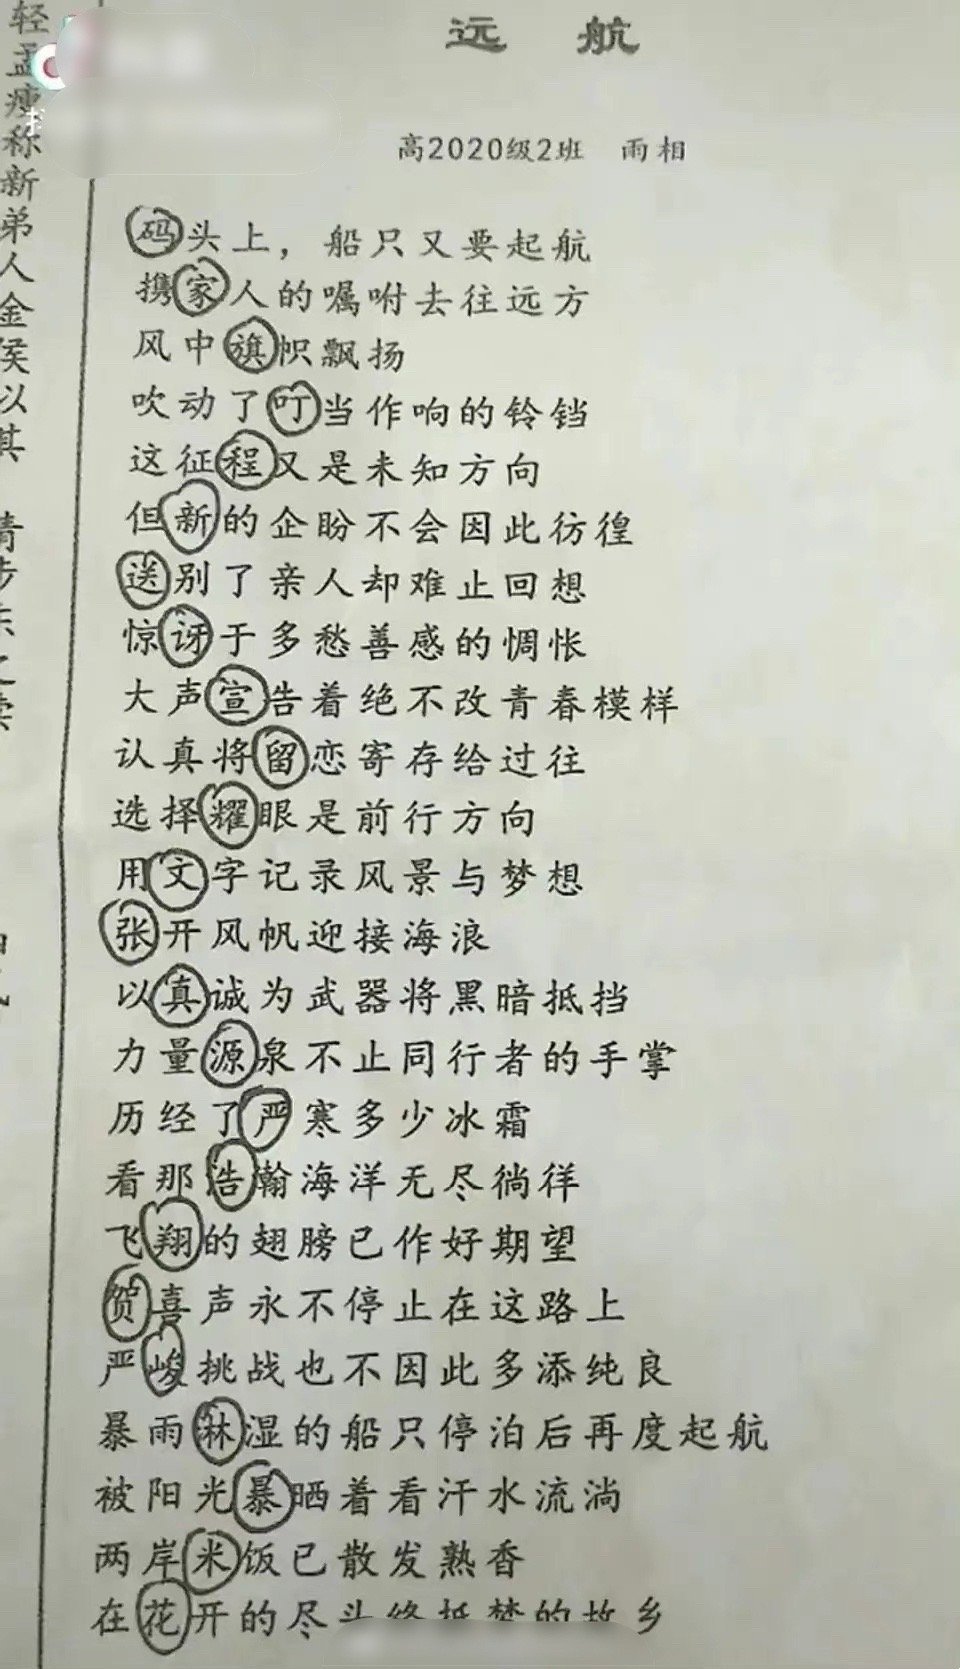 轻
孟
瘦
称
新
弟
人
金
侯
以
其
情
步
之
读
远航
高2020级2班 雨相
码头上，船只又要起航
携家人的嘱咐去往远方
风中旗帜飘扬
吹动了叮当作响的铃铛
这征程又是未知方向
但新的企盼不会因此彷徨
送别了亲人却难止回想
惊讶于多愁善感的惆怅
大声宣告着绝不改青春模样
认真将留恋寄存给过往
选择耀眼是前行方向
用文字记录风景与梦想
张开风帆迎接海浪
以真诚为武器将黑暗抵挡
力量源泉不止同行者的手掌
历经了严寒多少冰霜
看那浩瀚海洋无尽徜徉
飞翔的翅膀已作好期望
贺喜声永不停止在这路上
严峻挑战也不因此多添纯良
暴雨淋湿的船只停泊后再度起航
被阳光暴晒着看汗水流淌
两岸米饭已散发熟香
在花开的尽头终抵梦的故乡